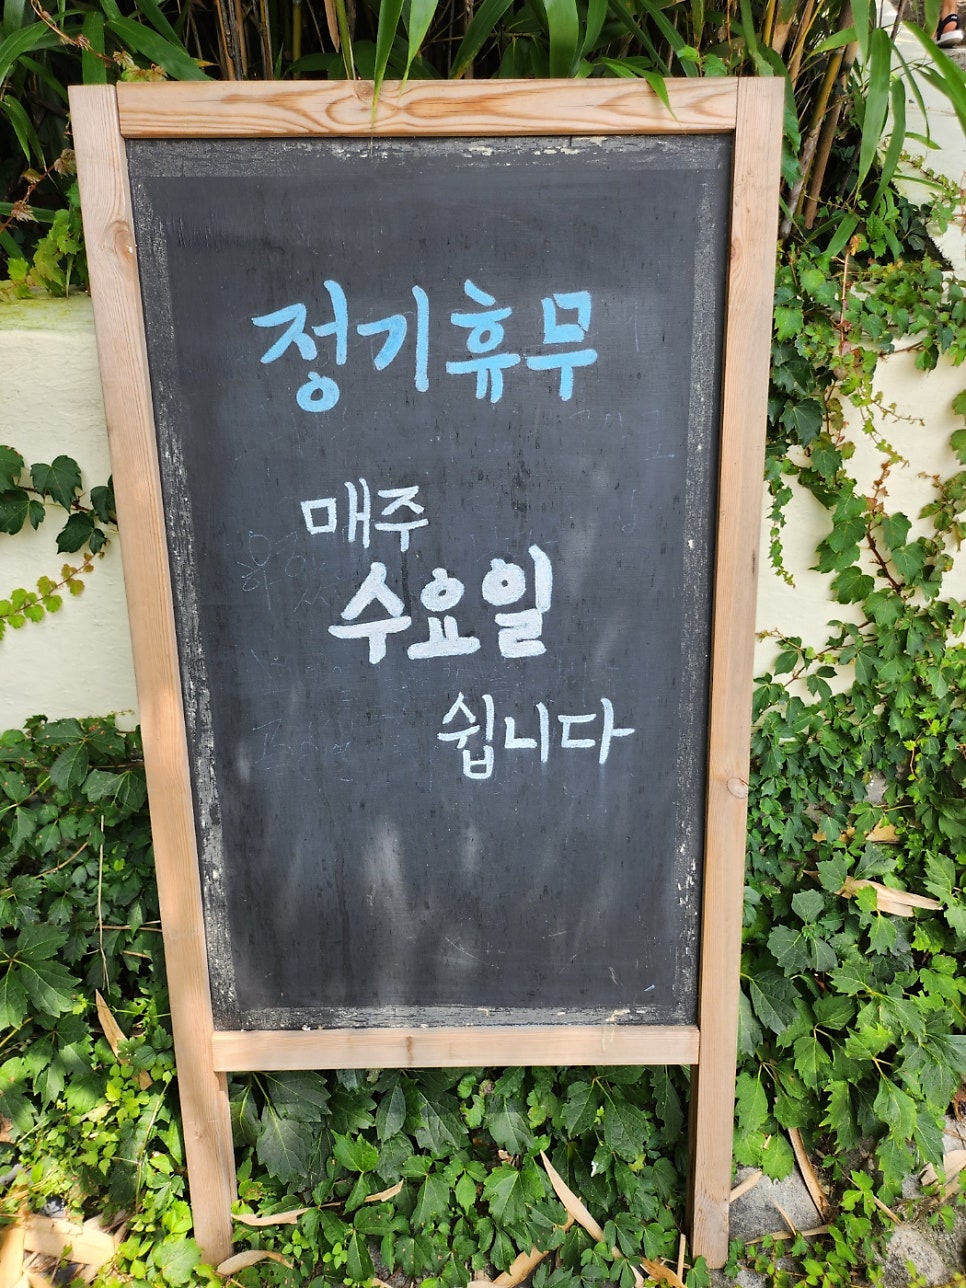 정기휴무
매주
수요일
쉽니다